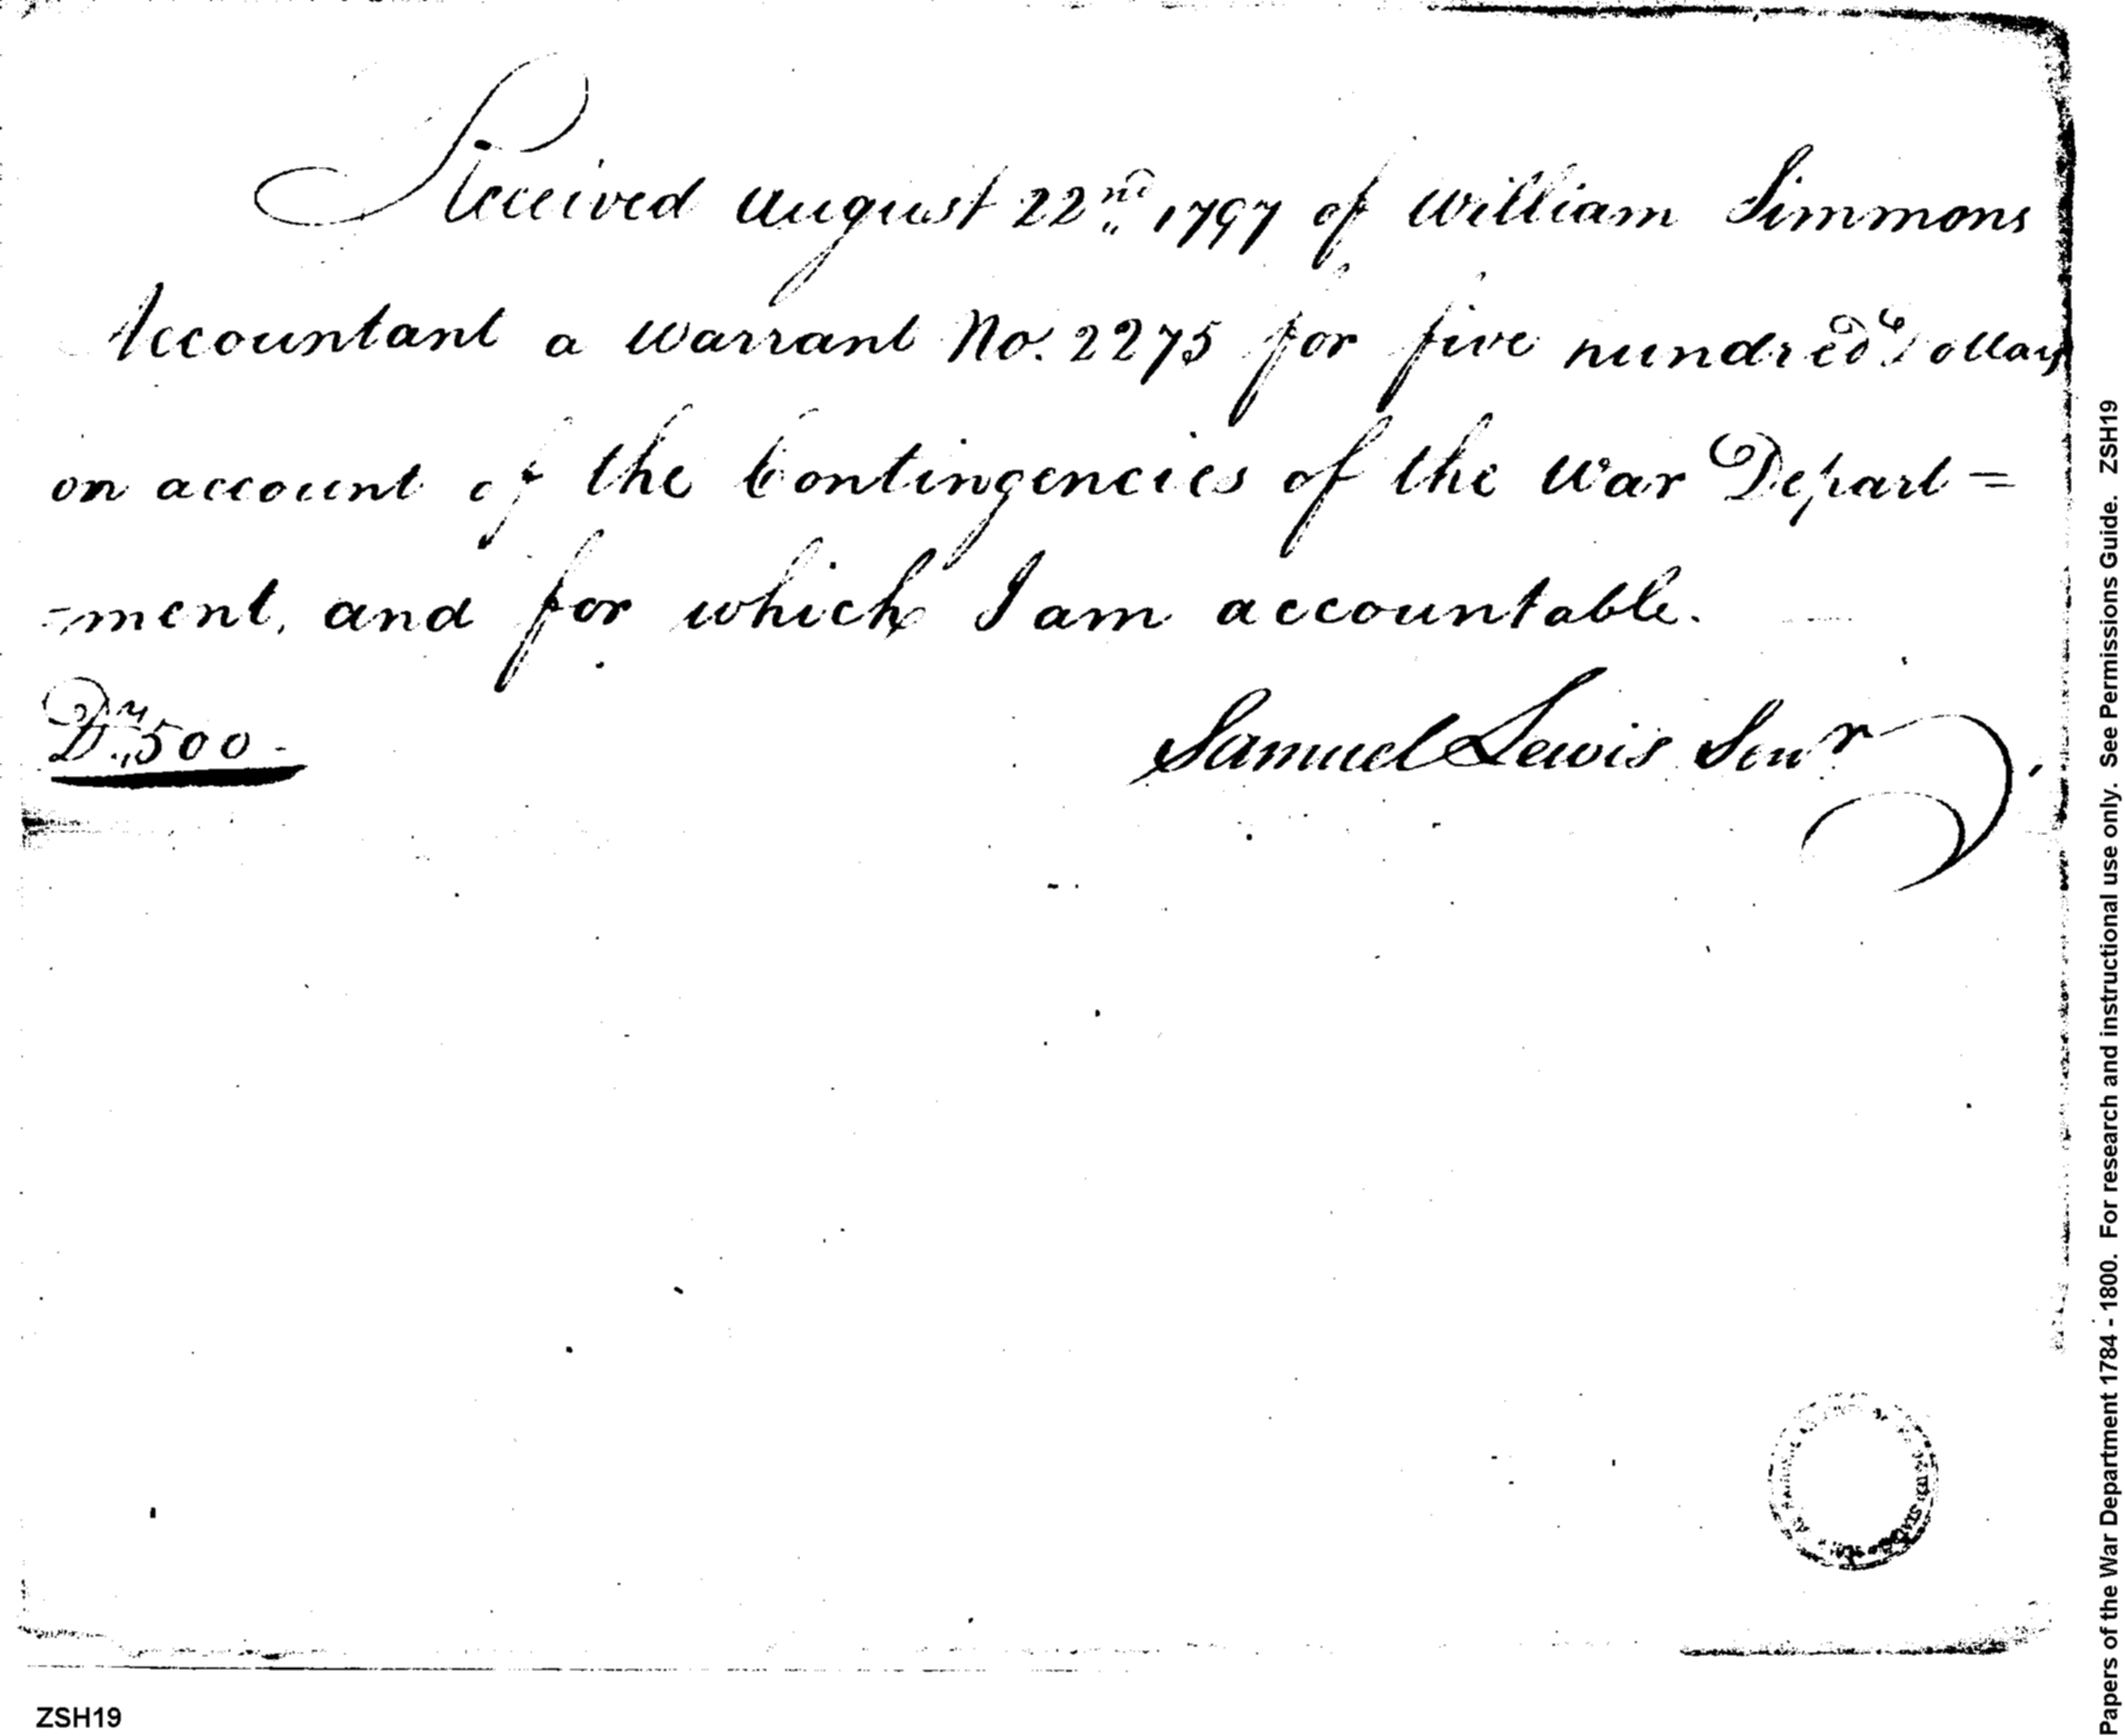 Received August 22nd 1797 of William Simmons
Accountant a Warrant No. 2275 for five hundred Dollars
on account of the Contingencies of the War Depart=
-ment, and for which I am accountable.
Drs 500-
Samuel Lewis Senr
ZSH19
Papers of the War Department 1784 - 1800. For research and instructional use only. See Permissions Guide. ZSH19